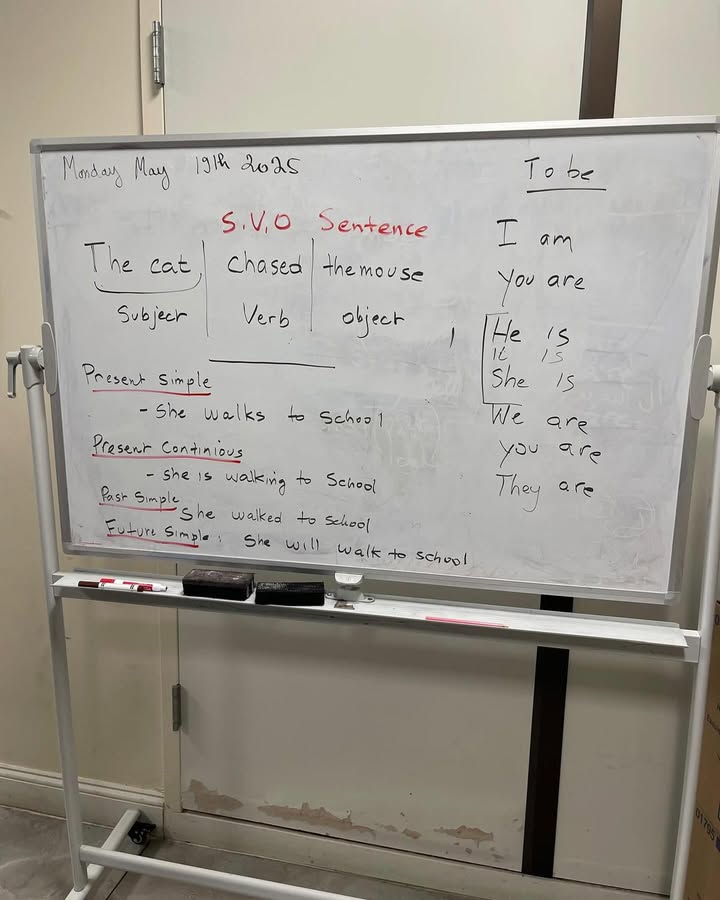 Monday May 19th 2025
S.V.O Sentence
The cat chased the mouse
Subject Verb object
Present simple
- She walks to school
Present Continious
- she is walking to School
Past Simple
She walked to school
Future Simple: She will walk to school
To be
I am
you are
He is
it is
She is
We are
you are
They are